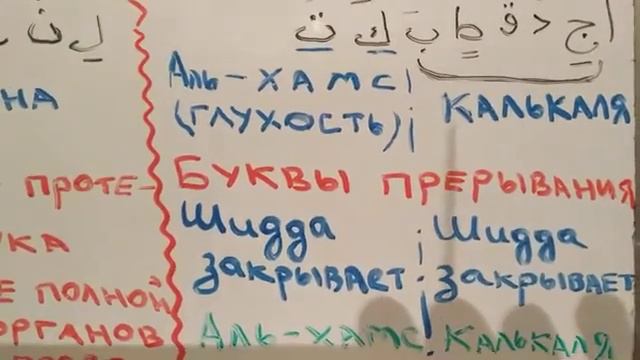 أ ج د ق ط ب ك ت
Аль-хамс
(глухость)
Калькаля
Буквы прерывания
Шидда
закрывает
Шидда
закрывает
Аль-хамс
Калькаля
ل ن
на
проте-
ука
е полной
органов